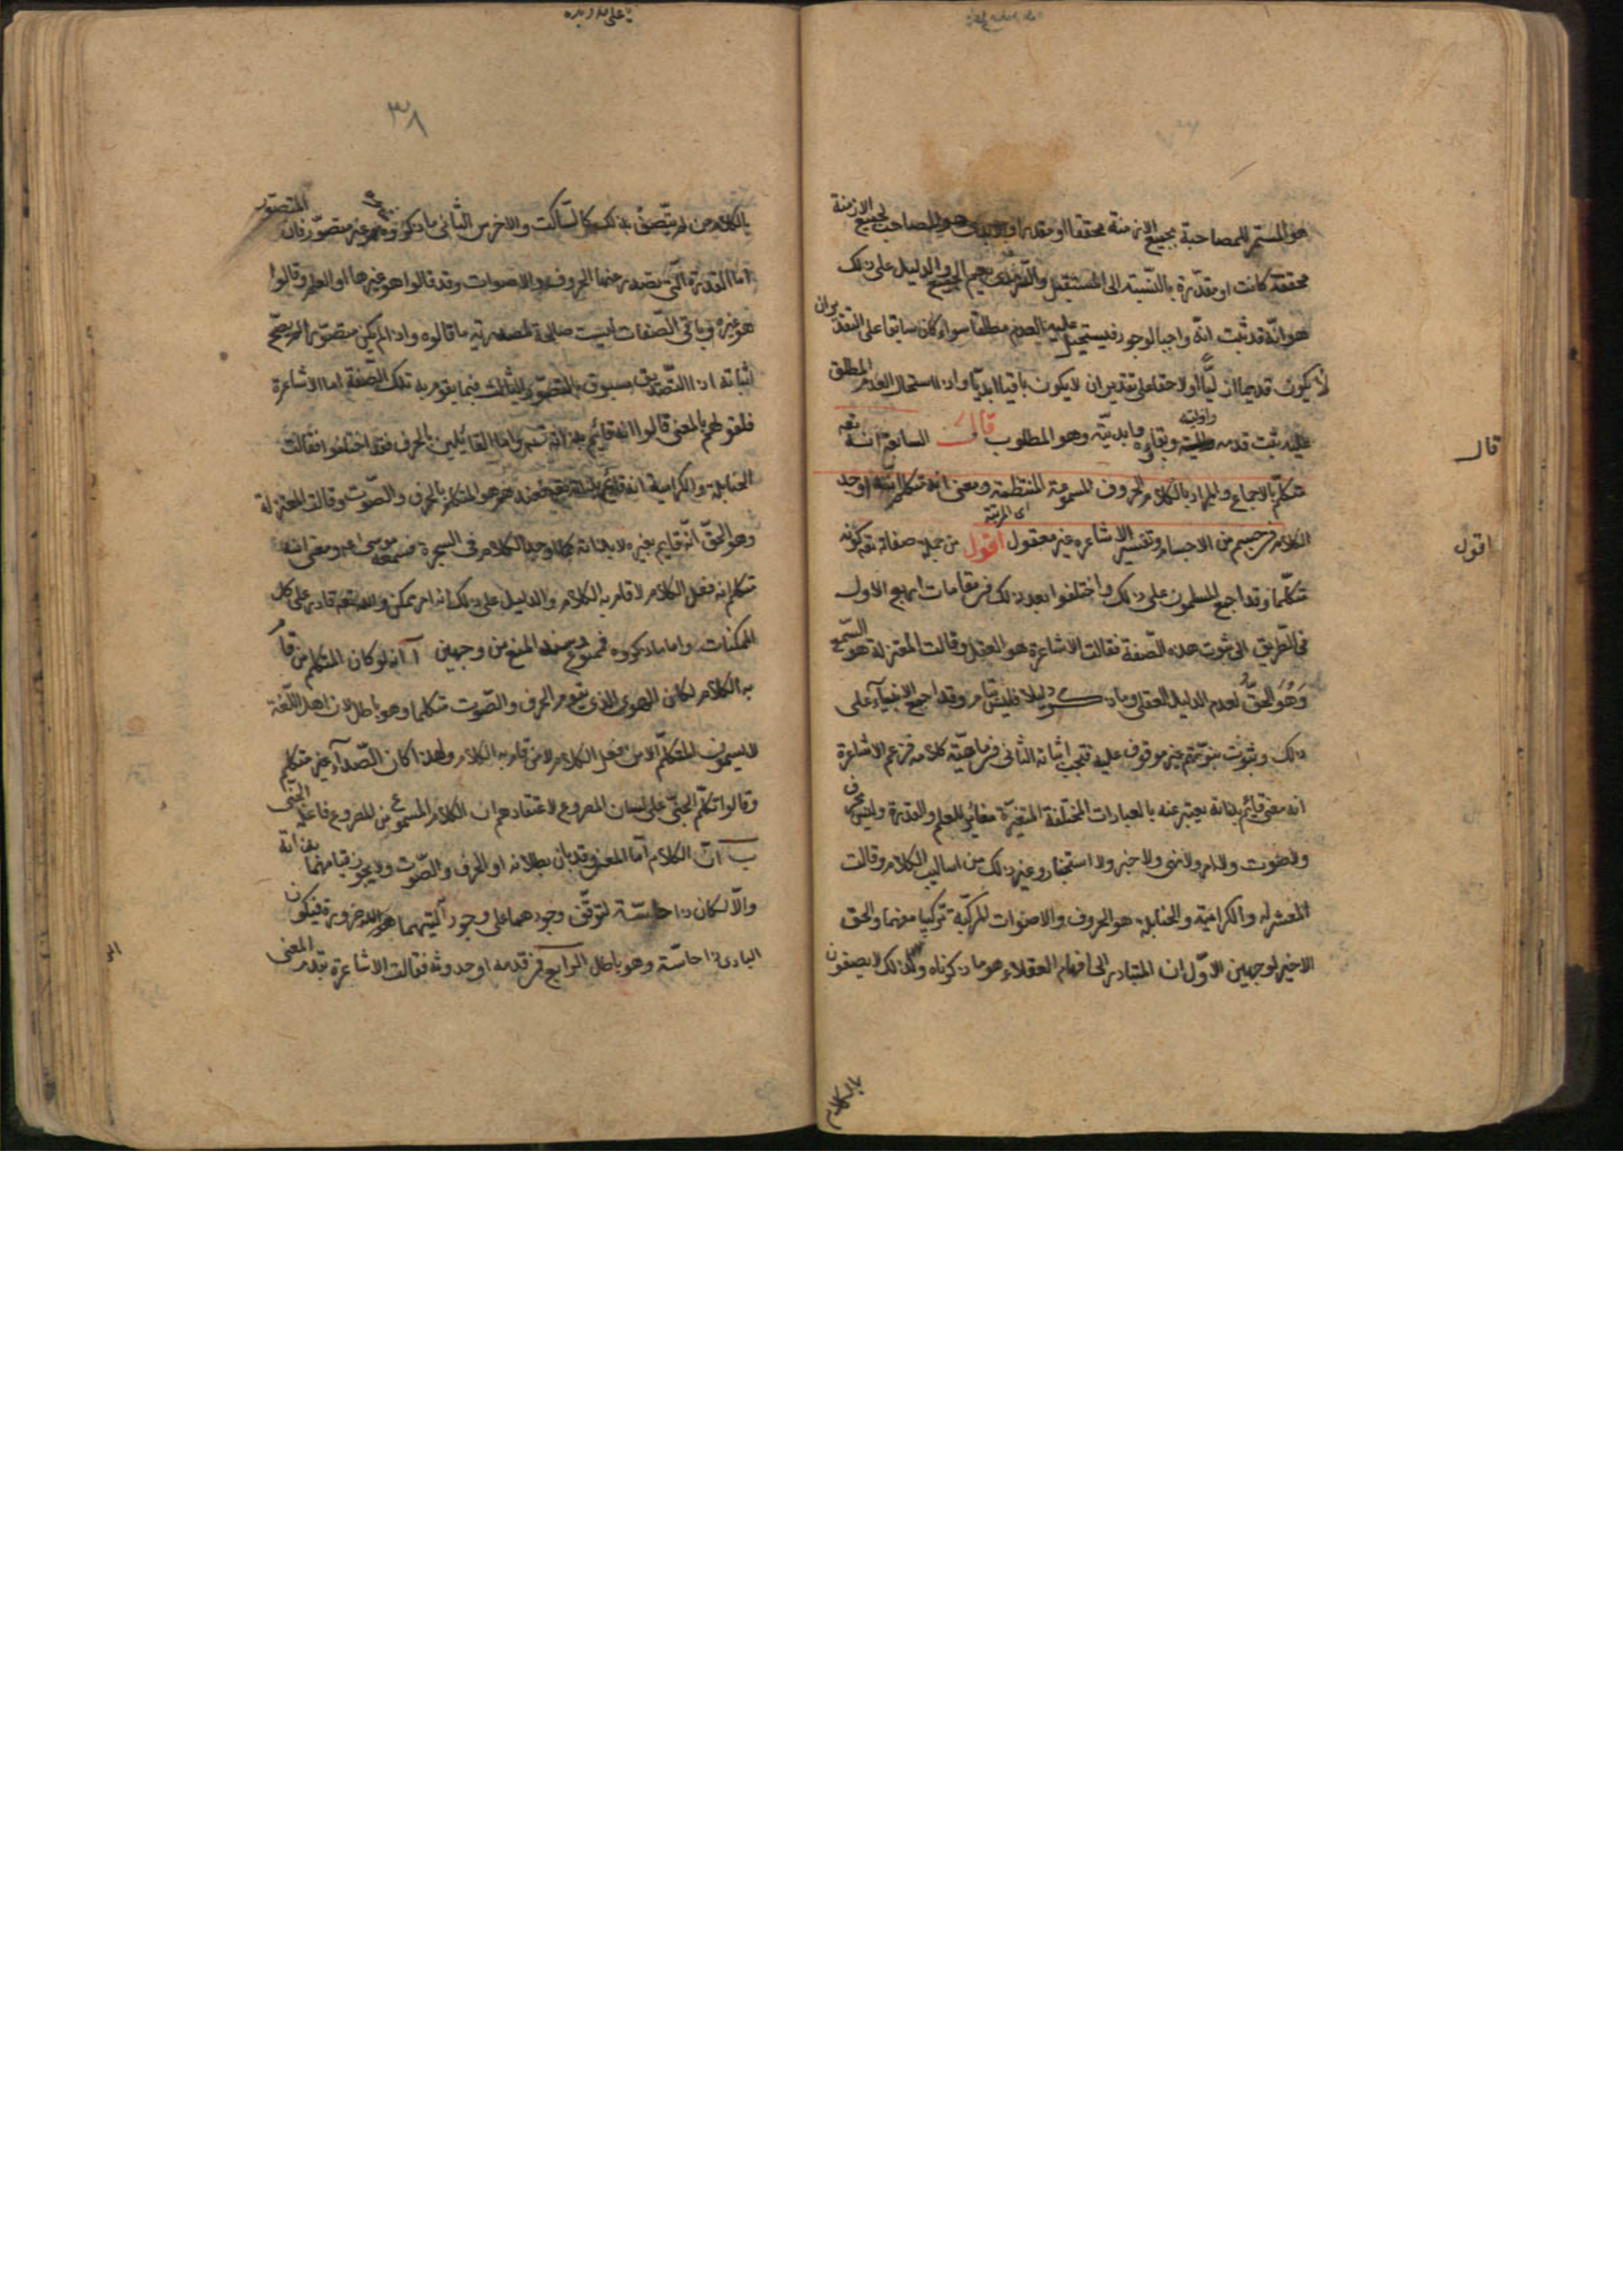 هو المستمر المصاحبة بجميع الازمنة محققا او مقدرا هو المصاحب لجميع الازمنة
محققة كانت او مقدرة بالنسبة الى المستقبل والدليل على ذلك
هو انه قد ثبت انه واجب الوجود فيستحيل عليه العدم مطلقا سواء كان سابقا على التقديران
لا يكون قديما ازليا او لاحقا على تقدير ان لا يكون باقيا ابديا واذا استحال العدم المطلق
عليه ثبت قدمه وازليته وبقاؤه وابديته وهو المطلوب قال السابعة انه تعه
متكلم بالاجماع والمراد بالكلام الحروف المسموعة المنتظمة ومعنى انه متكلم انه اوجد
الكلام فى جسم من الاجسام وتفسير الاشاعره غير معقول اقول من جملة صفاته تعه كونه
متكلما وقد اجمع المسلمون على ذلك واختلفوا بعد ذلك فى مقامات اربع الاول
فى الطريق الى ثبوت هذه الصفة فقالت الاشاعرة هو العقل وقالت المعتزلة هو السمع
وهو الحق لعدم الدليل العقلى وما ذكروه دليلا فليس بتام وقد اجمع الانبياء على
ذلك وثبوت نبوتهم غير موقوف عليه فتجب اثباته الثانى فى ماهية كلامه فزعم الاشاعرة
انه معنى قايم بذاته يعبر عنه بالعبارات المختلفة المتغيرة مغاير للعلم والقدرة وليس بحرف
ولا صوت ولا امر ولا نهى ولا خبر ولا استخبار وغير ذلك من اساليب الكلام وقالت
المعتزله والكرامية والحنابلة هو الحروف والاصوات المركبة تركيبا مفهما والحق
الاخير لوجهين الاول ان المتبادر الى افهام العقلاء هو ما ذكرناه ولذلك لا يصفون
بالكلام
قال
اقول
٣٨
بالكلام من لم يتصف بذلك كالساكت والاخرس الثانى ما ذكروه غير متصور فان المتصور
اما القدرة التى تصدر عنها الحروف والاصوات وقد قالوا هو غيرها او العلم وقالوا
هو غيره وباقى الصفات ليست صالحة لمصدرية ما قالوه واذا لم يكن متصورا لم يصح
اثباته اذ التصديق مسبوق بالتصور الثالث فيما يقوم به تلك الصفة اما الاشاعرة
فلقولهم بالمعنى قالوا انه قايم بذاته تعه واما القايلين بالحرف فقد اختلفوا فقالت
الحنابلة والكرامية انه قايم بذاته تعه فعندهم هو المتكلم بالحرف والصوت وقالت المعتزلة
وهو الحق انه قايم بغيره لا بذاته كما اوجد الكلام فى الشجرة فسمعه موسى ع ومعنى انه
متكلم انه فعل الكلام لا قام به الكلام والدليل على ذلك انه امر ممكن والله تعه قادر على كل
الممكنات واما ما ذكروه فممنوع وسند المنع من وجهين آ انه لو كان المتكلم من قام
به الكلام لكان الهوى الذى يقوم به الحرف والصوت متكلما وهو باطل لان اهل اللغة
لا يسمون المتكلم الا من فعل الكلام لا من قام به الكلام ولهذا كان الصدآء غير متكلم
وقالوا تكلم الجنى على لسان المصروع لاعتقادهم ان الكلام المسموع من المصروع فاعله الجنى
ب ان الكلام اما المعنى وقد بان بطلانه او الحرف والصوت ولا يجوز قيامهما بذاته
والا لكان ذا حاسة لتوقف وجودهما على وجود آلتيهما ضرورة فيكون
البارى ذا حاسة وهو باطل الرابع فى قدمه او حدوثه فقالت الاشاعرة بقدم المعنى